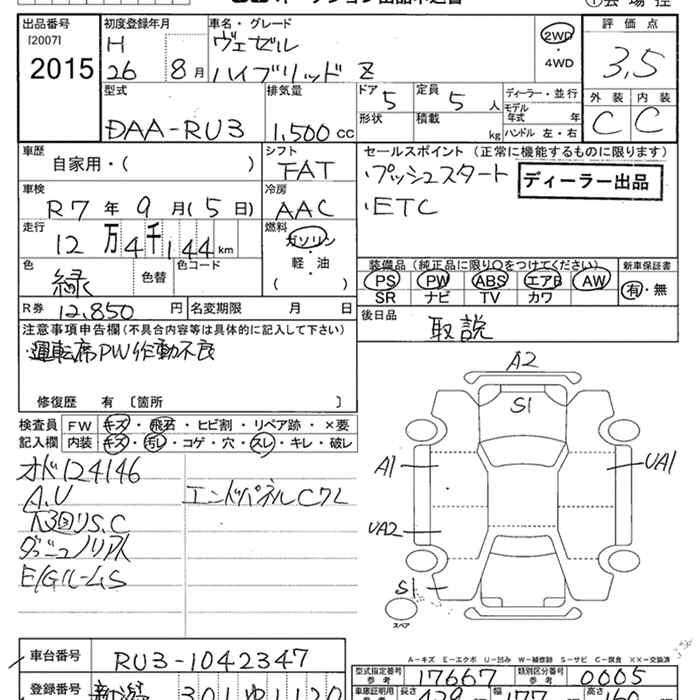 出品番号 初度登録年月 車名・グレード 評価点
[2007] H ヴェゼル 2WD
2015 26 8月 ハイブリッド Z ・ 4WD 3.5
型式 排気量 ドア 5 定員 5人 ディーラー・並行 外装 内装
DAA-RU3 1,500 cc 形状 積載 kg モデル年式 年 ハンドル 左・右 C C
車歴 自家用・( ) シフト FAT セールスポイント (正常に機能するものに限ります)
車検 冷房 ・プッシュスタート ディーラー出品
R7年 9月(5日) AAC ・ETC
走行 12万4千144km 燃料 ガソリン
・軽・油 ( ・ ) 装備品(純正品に限り○をつけてください) 新車保証書
色 緑 色替 色コード PS PW ABS エアB AW 有・無
SR ナビ TV カワ
R券 12,850円 名変期限 月 日 後日品 取説
注意事項申告欄(不具合内容等は具体的に記入して下さい)
・運転席PW作動不良
修復歴 有 〔箇所 〕
検査員 FW キズ・飛石・ヒビ割・リペア跡・×要
記入欄 内装 キズ・汚レ・コゲ・穴・スレ・キレ・破レ
オド124146
A.U エンドパネルCクレ
下回りS.C
E/GルームS
A2
S1
A1 UA1
UA2
S1
スペア
A-キズ E-エクボ U-凹み W-補修跡 S-サビ C-腐食 X-要 XX-交換済
車台番号 RU3-1042347 型式指定番号 参考 17667 類別区分番号 参考 0005
登録番号 新潟 301 ゆ 1120 車庫証明用 参考 長さ 429 幅 177 高さ 160